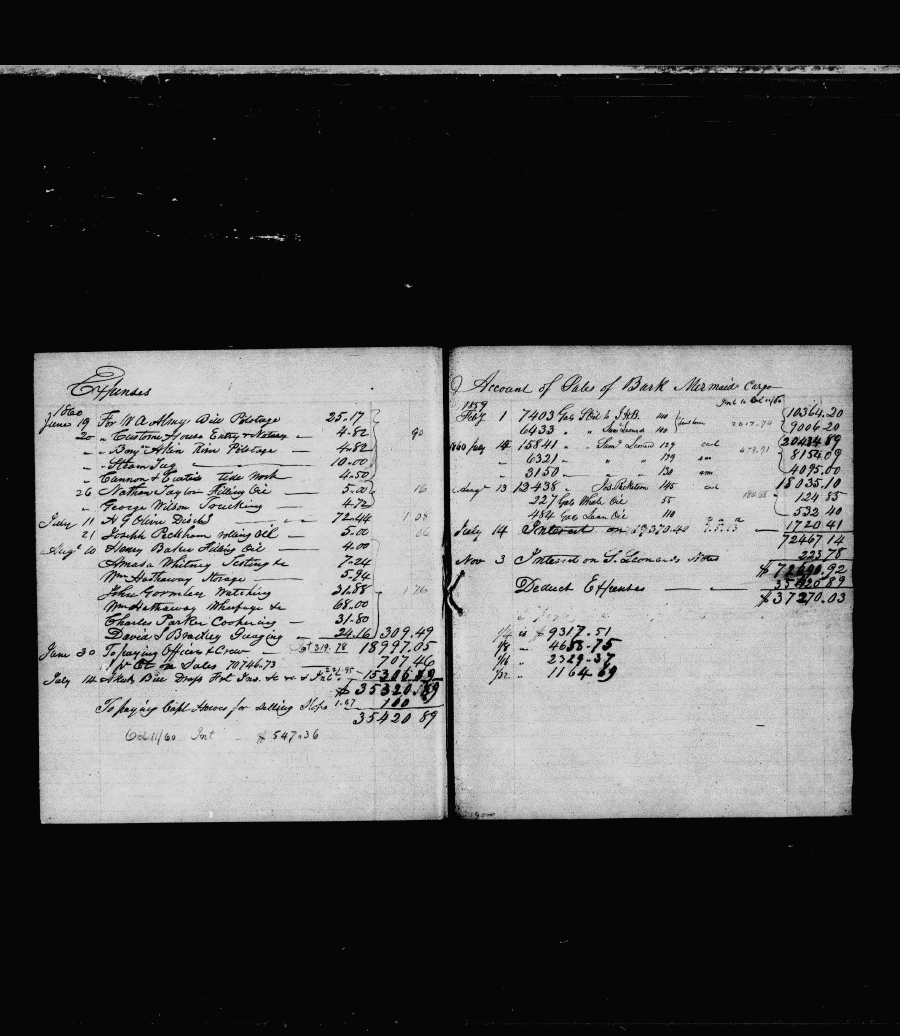 Expenses
1860
June 19 For W A Almy's Bill Pilotage 25.17
20 " Custom House Entry & Notary 4.82 90
" " Benjn Akin River Pilotage 4.82
" " Steam Tug 10.00
" Cannon & Curtis tide Work 4.50
26 Nathan Taylor Filling Oil 5.00 16
" George Wilson Trucking 4.72
July 11 A G Olive Discht 72.44 1 08
21 Joseph Peckham rolling oil 5.00 06
Augt 10 Henry Baker Filling Oil 4.00
Amasa Whitney Testing &c 7.24
Wm Hathaway Storage 5.94
John Gormley Watching 31.88 1 76
Wm Hathaway Wharfage &c 68.00
Charles Parker Coopering 31.80
David S Bradley Gauging 24.16 309.49
June 30 To paying Officers & Crew Int 319.78 18997.05
1 pr Ct on Sales 70746.73 707.46
July 14 Bill 15306.89
$ 35320.89
To paying Capt for selling Slops 1.67 100
35420 89
Oct 11/60 Int $ 547.36
Account of Sales of Bark Mermaids Cargo
1859 Int to Oct 11/60
Feby 1 7403 Gals Oil to J.H.B. 140 10364.20
6433 " " Saml Leonard 140 2017.70 9006.20
1860 July 14 15841 " " Saml Leonard 129 20434 89
6321 " " 129 473.91 8154.09
3150 " " 130 4095.00
Augt 13 12438 " Jos Ricketson 145 18035.10
227 Gals Whale Oil 55 124 85
484 Gals Oil 110 532 40
July 14 Interest on 19370.40 1720 41
72467 14
Nov 3 Interest on S. Leonards Notes 223 78
$ 72690.92
Deduct Expenses 35420 89
$ 37270.03
1/4 is $ 9317.51
1/8 " 4658.75
1/16 " 2329.37
1/32 " 1164.69